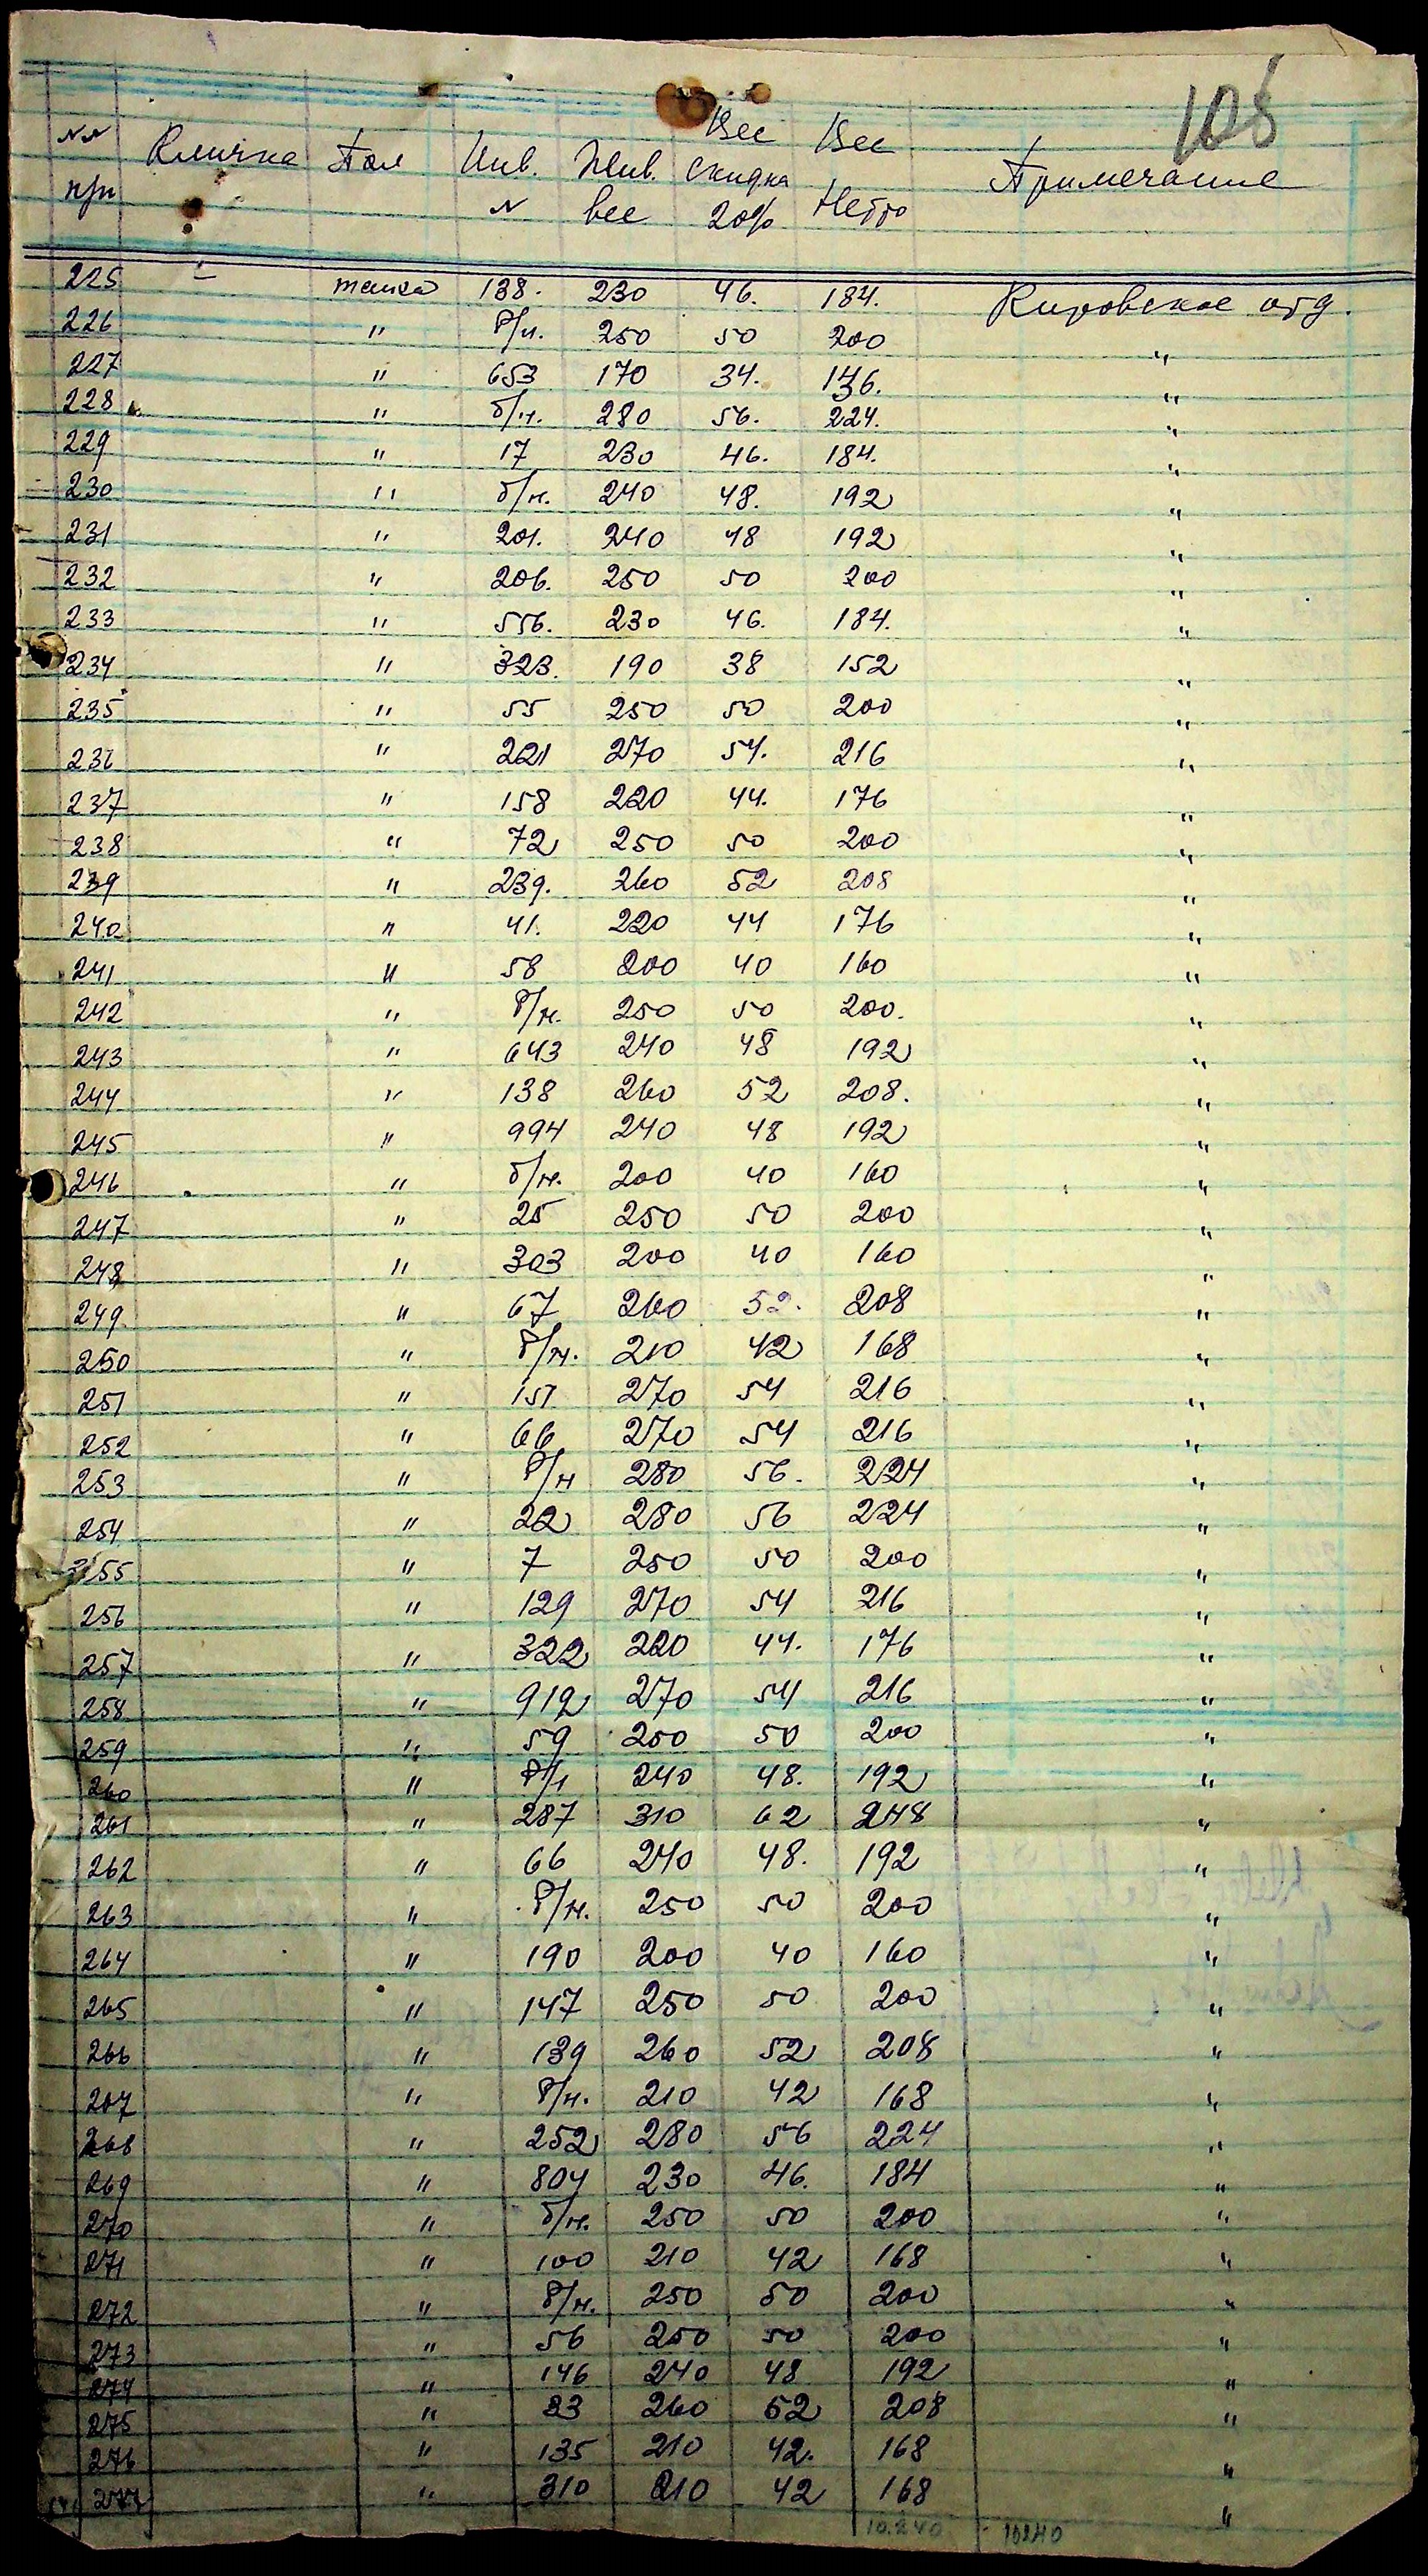 108
№№ Кличка Пол Инв. Жив. Вес Вес Примечание
п/п № вес скидка 20% Нетто
225 - телка 138. 230 46. 184. Кировское отд.
226 " б/н. 250 50 200 "
227 " 653 170 34. 136. "
228 " б/н. 280 56. 224. "
229 " 17 230 46. 184. "
230 " б/н. 240 48. 192 "
231 " 201. 240 48 192 "
232 " 206. 250 50 200 "
233 " 556. 230 46. 184. "
234 " 323. 190 38 152 "
235 " 55 250 50 200 "
236 " 221 270 54. 216 "
237 " 158 220 44. 176 "
238 " 72 250 50 200 "
239 " 239. 260 52 208 "
240 " 41. 220 44 176 "
241 " 58 200 40 160 "
242 " б/н. 250 50 200. "
243 " 643 240 48 192 "
244 " 138 260 52 208. "
245 " 994 240 48 192 "
246 " б/н. 200 40 160 "
247 " 25 250 50 200 "
248 " 303 200 40 160 "
249. " 67 260 52. 208 "
250 " б/н. 210 42 168 "
251 " 151. 270 54 216 "
252 " 66 270 54 216 "
253 " б/н 280 56. 224 "
254 " 22 280 56 224 "
255 " 7 250 50 200 "
256 " 129 270 54 216 "
257 " 322 220 44. 176 "
258 " 912 270 54 216 "
259 " 59 250 50 200 "
260 " б/н 240 48. 192 "
261 " 287 310 62 248 "
262 " 66 240 48. 192 "
263 " б/н. 250 50 200 "
264 " 190 200 40 160 "
265 " 147 250 50 200 "
266 " 139 260 52 208 "
267 " б/н. 210 42 168 "
268 " 252 280 56 224 "
269 " 804 230 46. 184 "
270 " б/н. 250 50 200 "
271 " 100 210 42 168 "
272 " б/н. 250 50 200 "
273 " 56 250 50 200 "
274 " 146 240 48 192 "
275 " 23 260 52 208 "
276 " 135 210 42. 168 "
277 " 310 210 42 168 "
10.240 - 10240